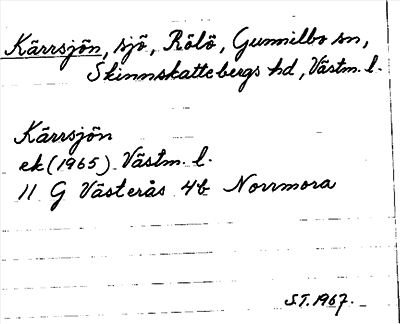 Kärrsjön, sjö, Rölö, Gunnilbo sn,
Skinnskattebergs hd, Västm. l.
Kärrsjön
ek (1965) Västm. l.
11 G Västerås 4b Norrmora
S.T. 1967.